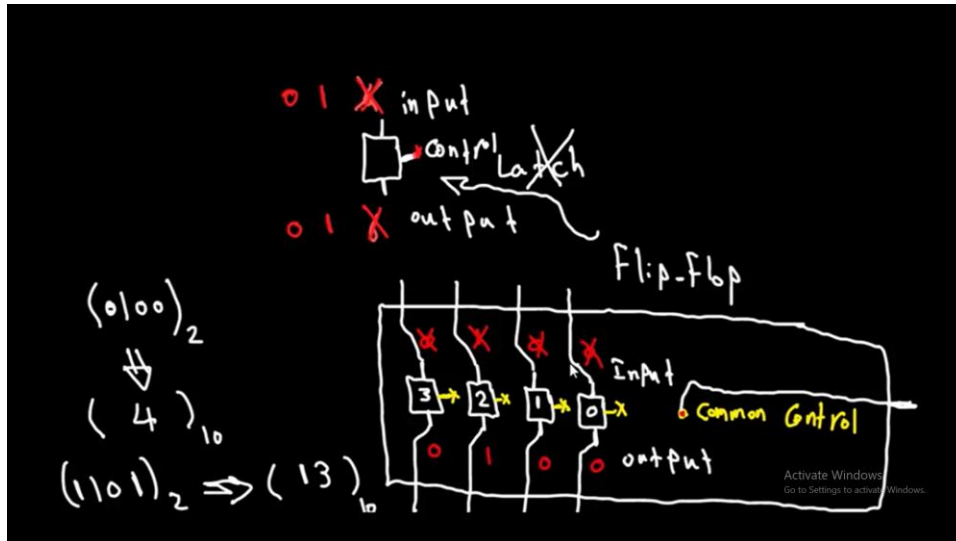 0 1 X input
control
Latch
0 1 X output
Flip-Flop
(0100)2
( 4 )10
(1101)2 => ( 13 )10
Input
3 2 1 0
Common Control
0 1 0 0 output
Activate Windows
Go to Settings to activate Windows.